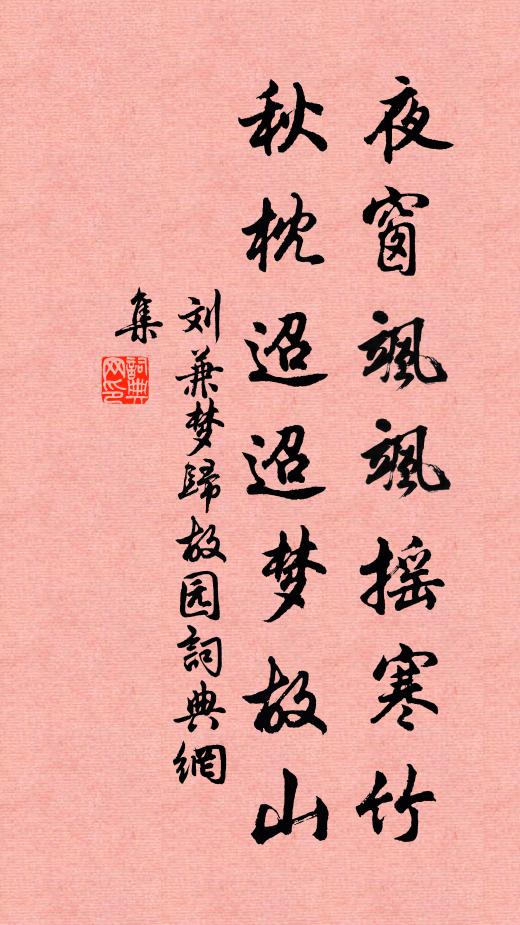 夜窗飒飒摇寒竹
秋枕迢迢梦故山
刘兼梦歸故园詞典網
集
詞典
网印